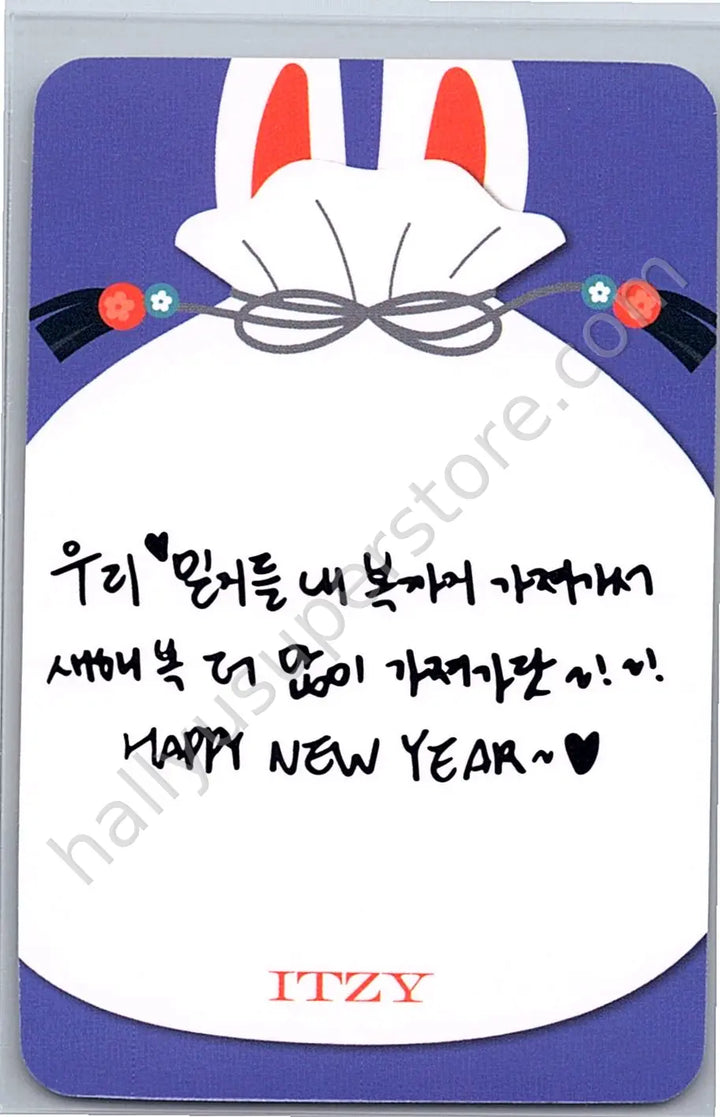 우리♥믿지들 내 복까지 가져가서
새해 복 더 많이 가져가랏~!~!
HAPPY NEW YEAR~♥
ITZY
hallyusuperstore.com